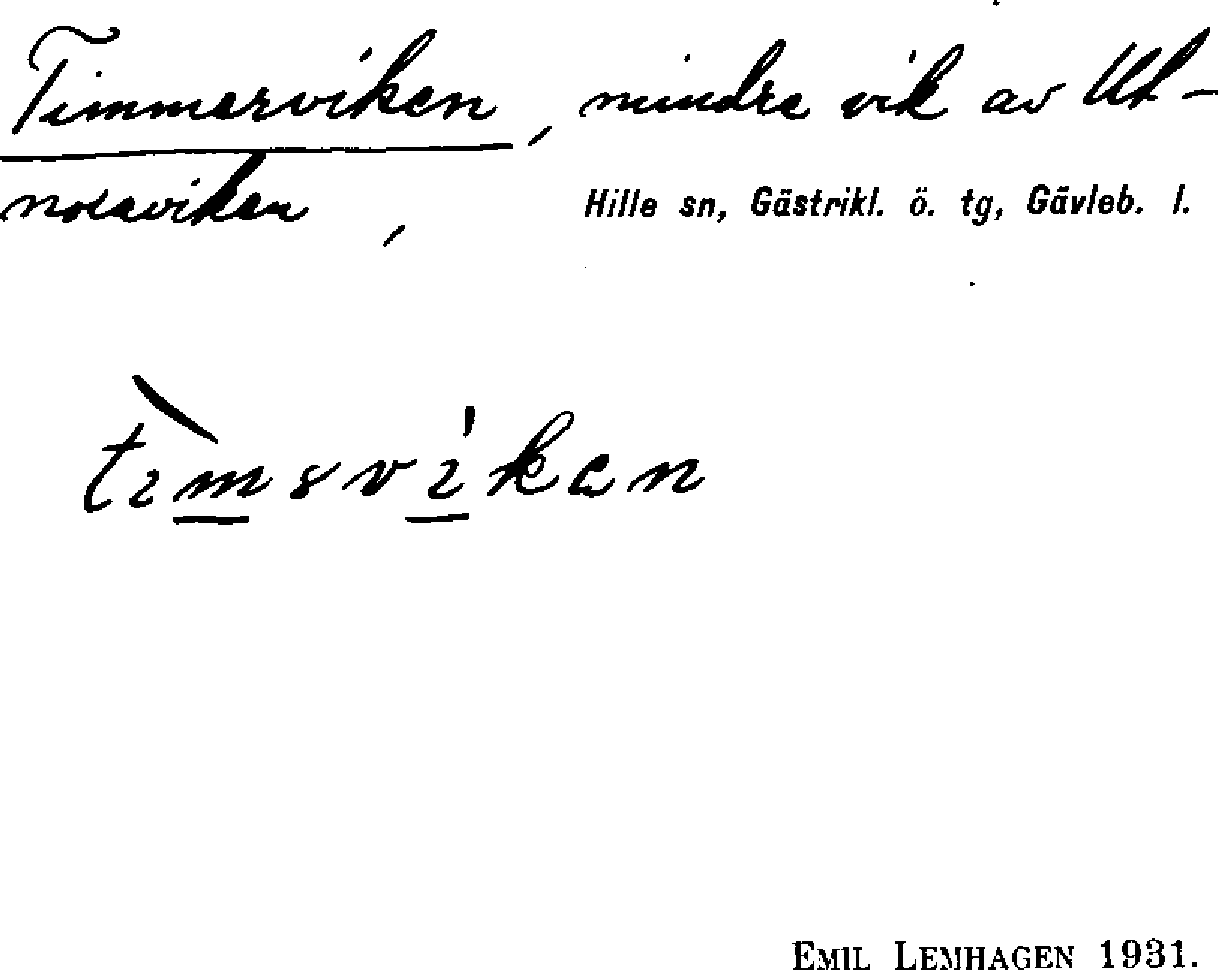 Timmerviken, mindre vik av Ut-
noraviken, Hille sn, Gästrikl. ö. tg, Gävleb. l.
EMIL LEMHAGEN 1931.